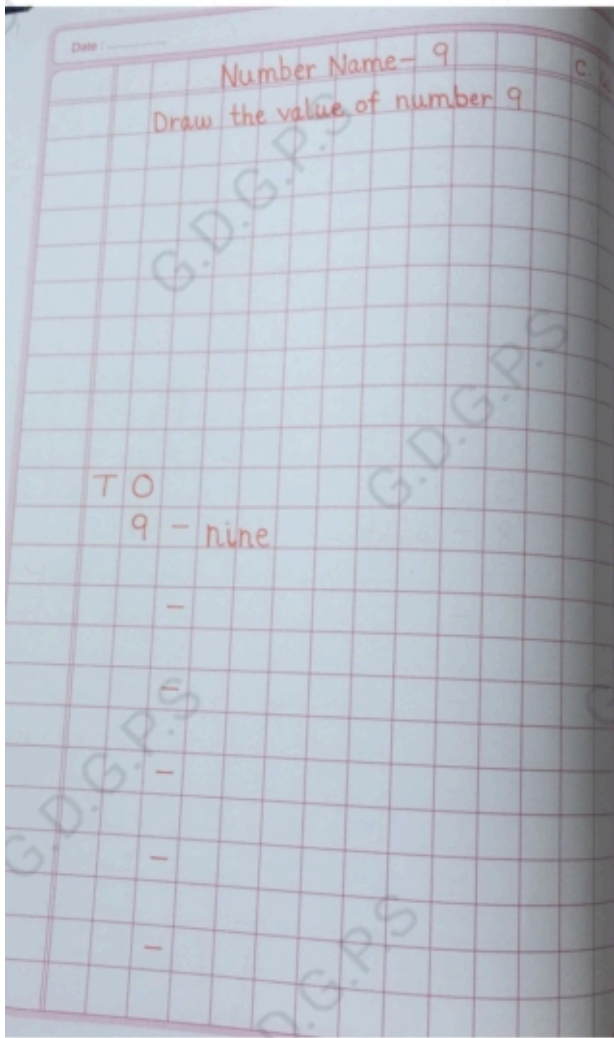 Date :
Number Name- 9
C
Draw the value of number 9
G.D.G.P.S
G.D.G.P.S
T O
9 - nine
-
-
G.D.G.P.S
-
-
-
D.G.P.S